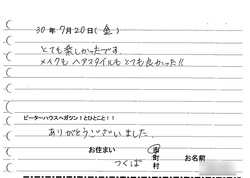 30年7月20日(金)
とても楽しかったです
メイクもヘアスタイルもとても良かった!!
ピーターハウスへガツン!とひとこと!!
ありがとうございました
お住まい つくば 市町村 お名前